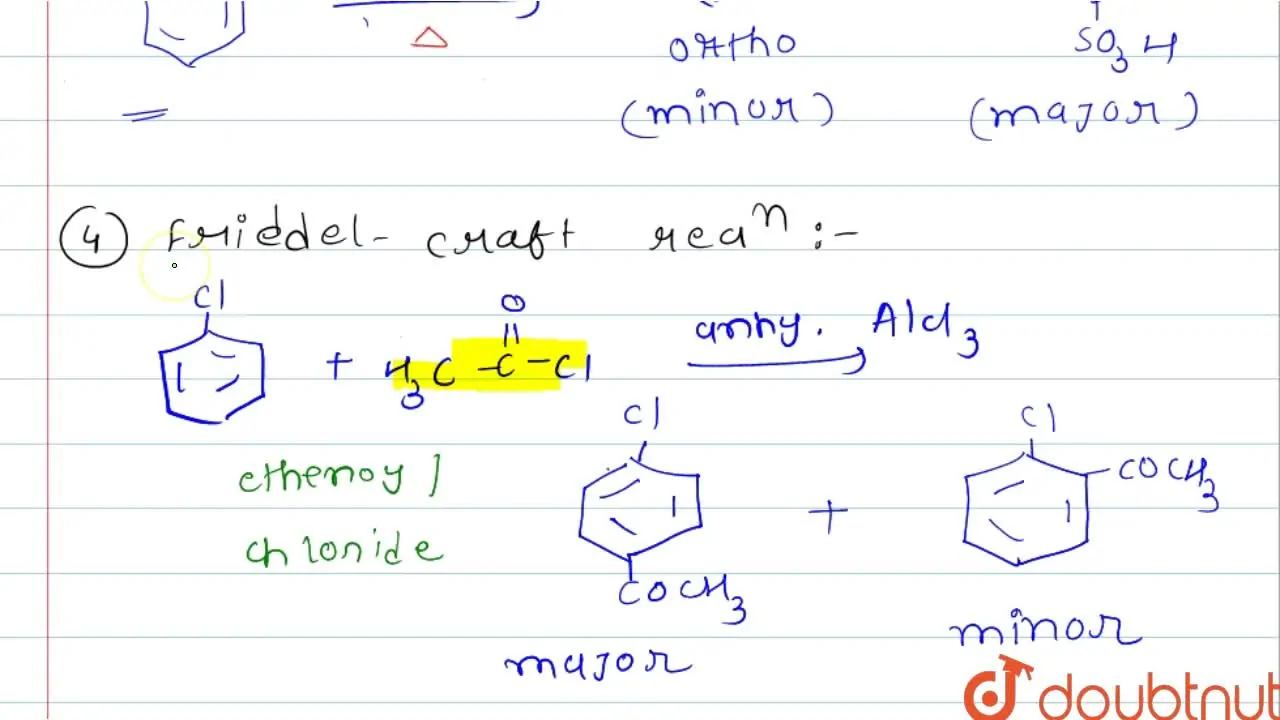 △
ortho
SO3H
(minor)
(major)
(4) Frieddel- craft reaⁿ :-
Cl
O
+ H3C-C-Cl
anhy. AlCl3
ethenoyl
chloride
Cl
COCH3
major
+
Cl
COCH3
minor
doubtnut